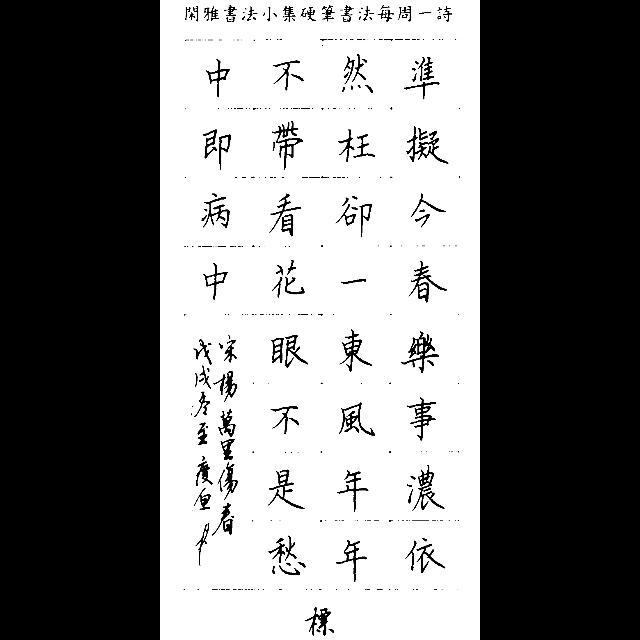 閑雅書法小集硬筆書法每周一詩
準擬今春樂事濃依
然枉卻一東風年年
不帶看花眼不是愁
中即病中
宋楊萬里傷春
戊戌冬至
標